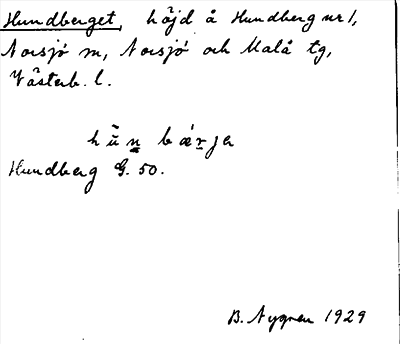 Hundberget, höjd å Hundberg nr 1,
Norsjö sn, Norsjö och Malå tg,
Västerb. l.
hūn bærje
Hundberg G. 50.
B. Nygren 1929